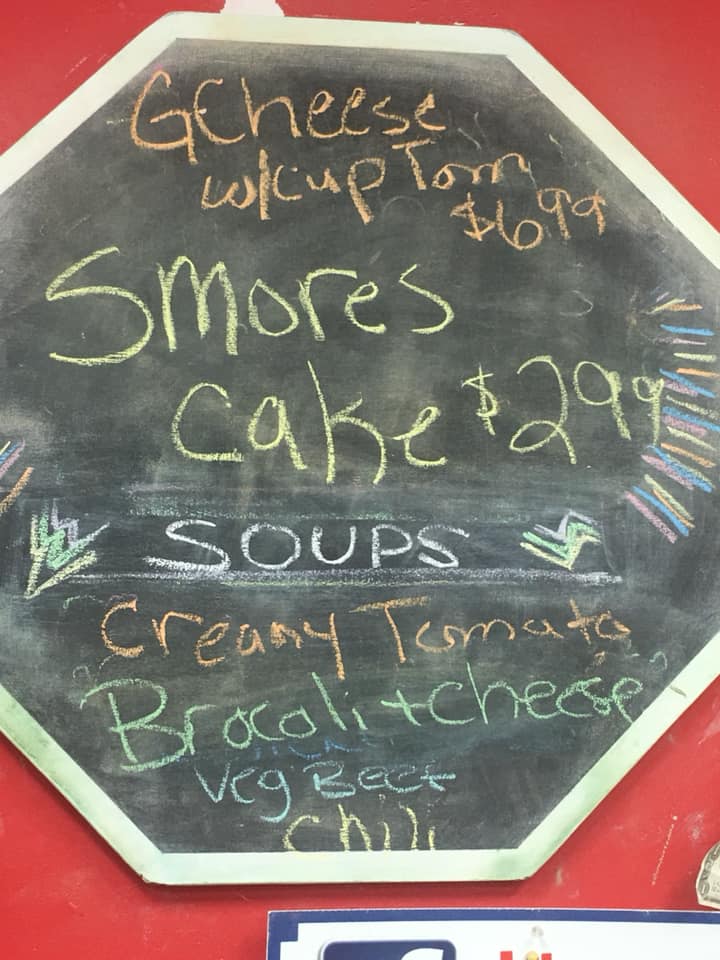 GCheese
w/cup Tom
$6.99
Smores
Cake $2.99
SOUPS
Creamy Tomato
Brocoli + cheese
Veg Beef
Chili